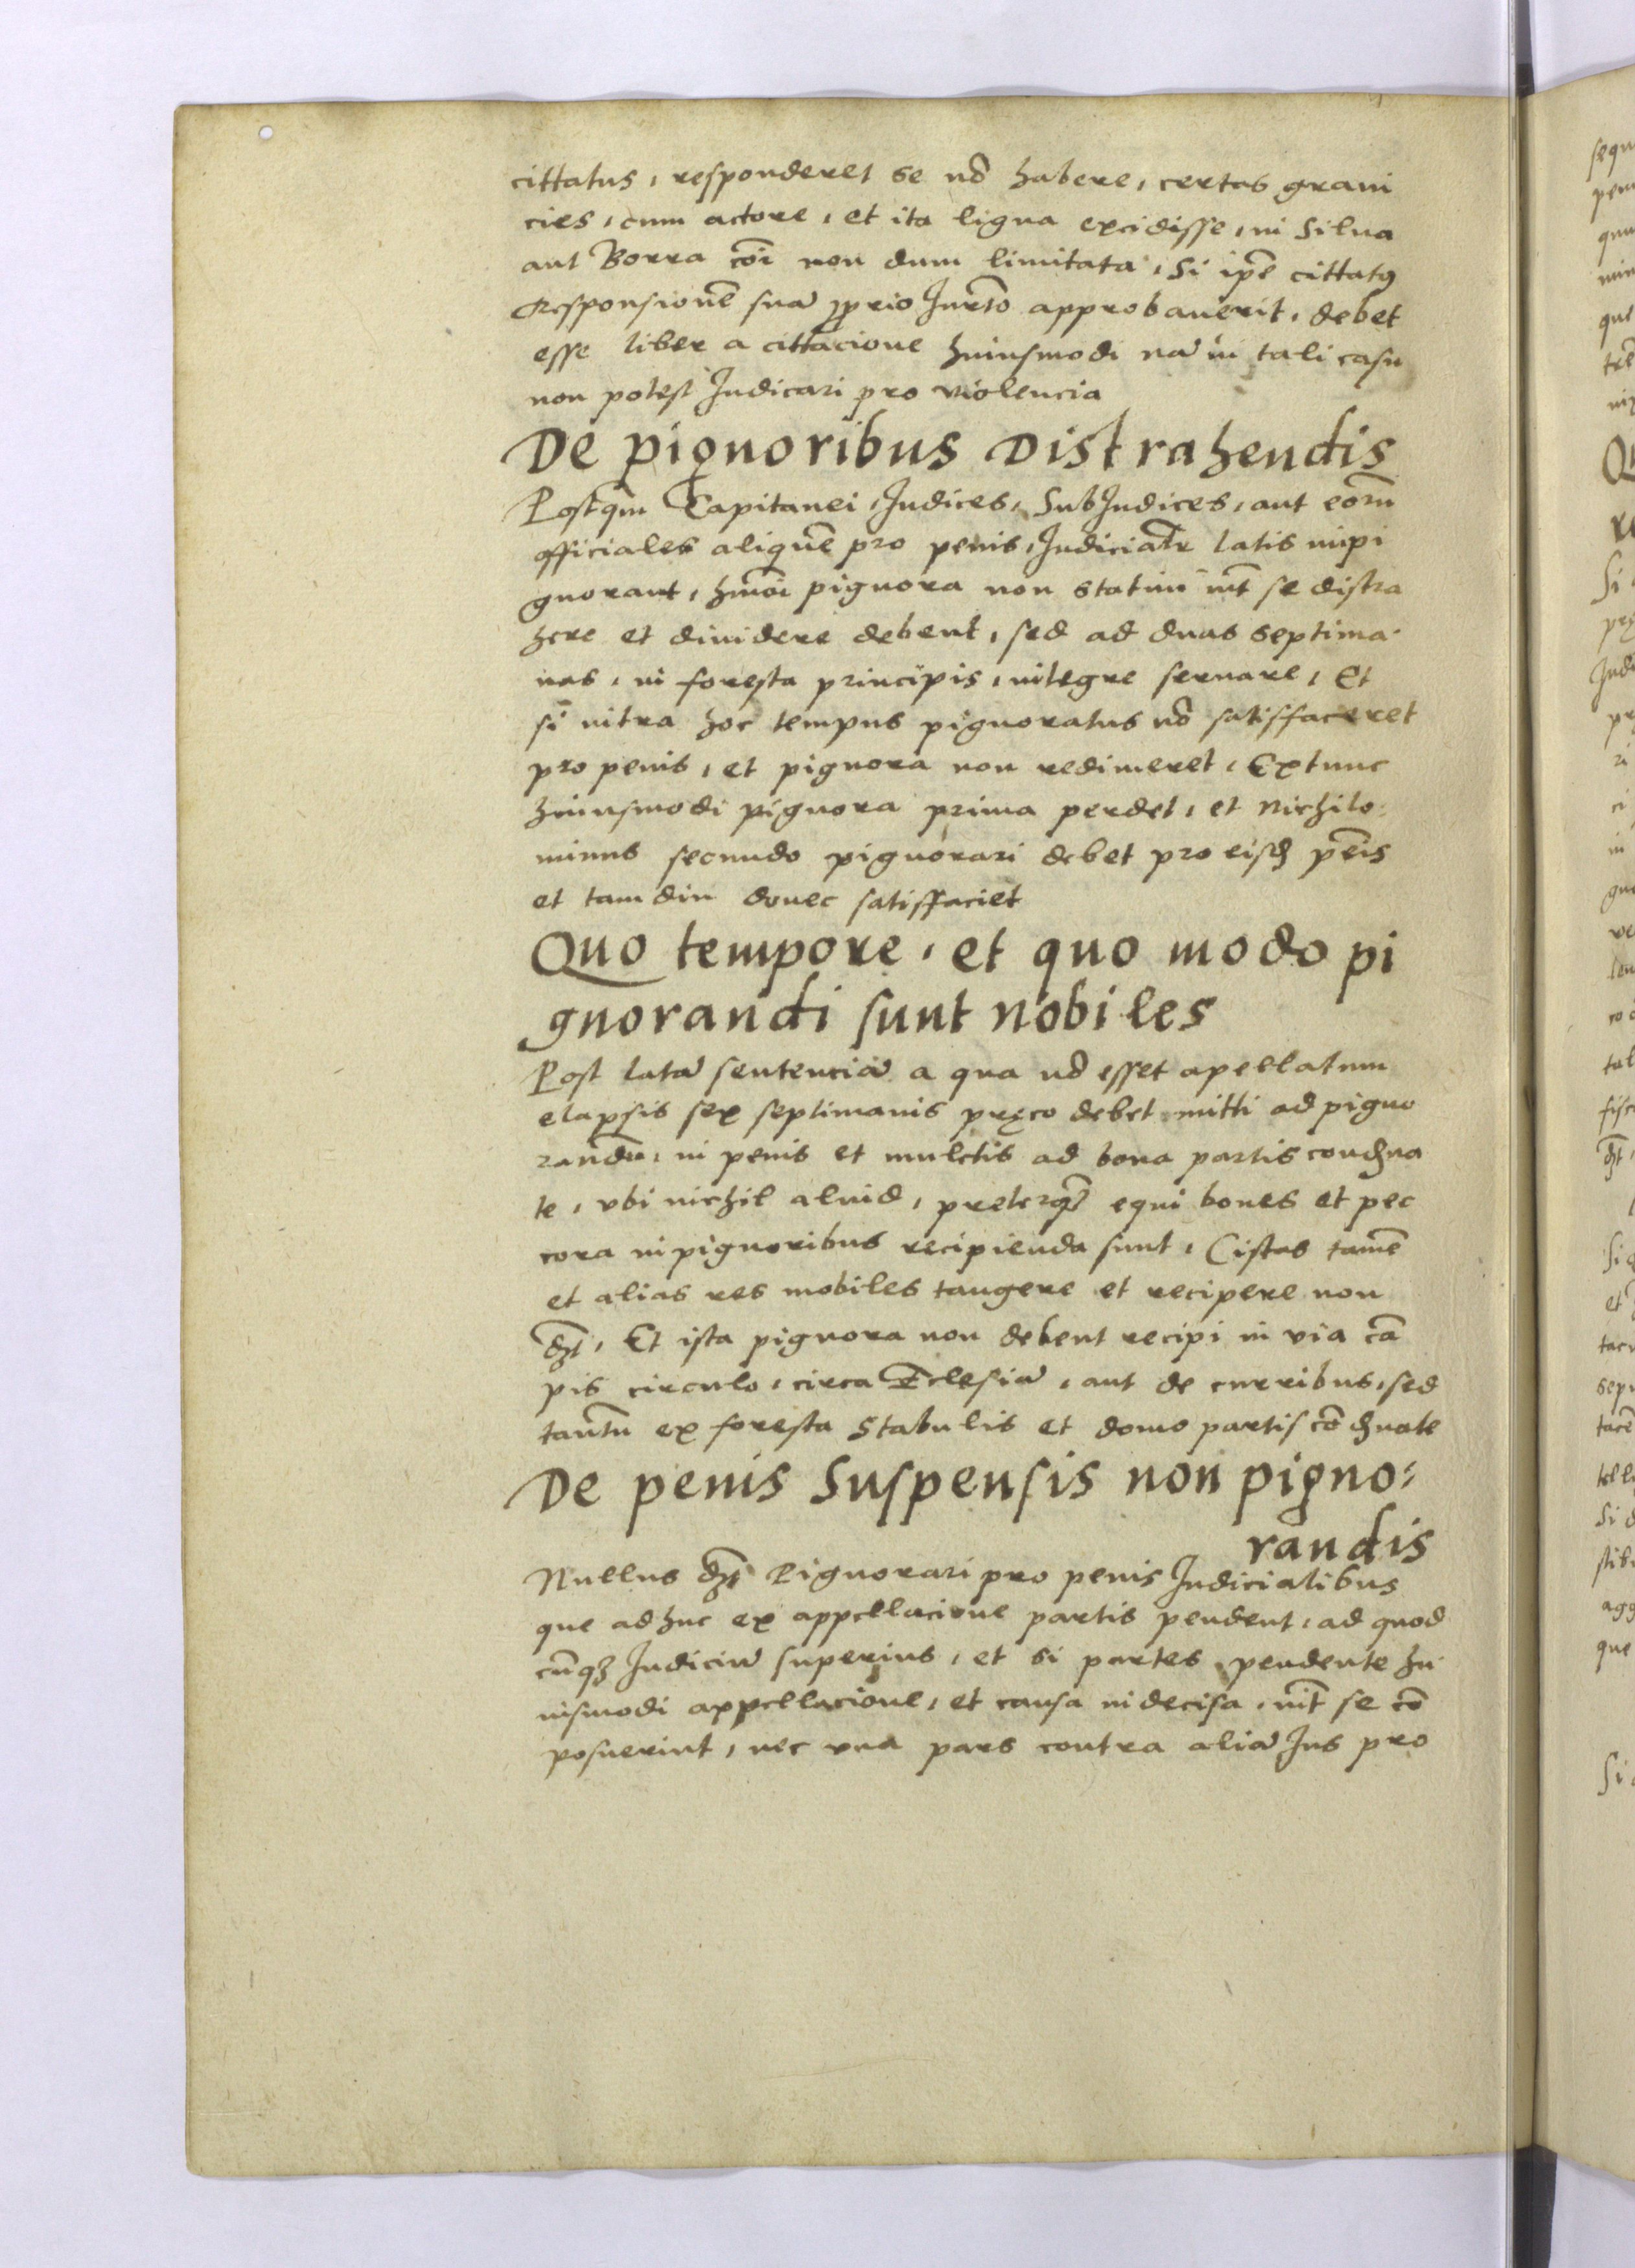 cittatus, responderet se nō habere, certas grani
cies, cum actore, et ita ligna excidisse, in Silua
aut Borra cōi non dum limitata, Si ip̄e cittatꝰ
Responsionē suā ꝓprio Iurtō approbauerit, debet
esse liber a cittacione huiusmodi nā in tali casu
non potest Iudicari pro violencia
De pignoribus Distrahendis
Postq̄m Capitanei, Iudices, SubIudices, aut eorū
officiales aliquē pro penis, Iudicialr̄ latis inpi
gnorant, hm̄oi pignora non statim int̄ se distra
here et diuidere debent, sed ad duas septima
nas, in foresta principis, integre seruare, Et
si vltra hoc tempus pignoratus nō satisfaceret
pro penis, et pignora non redimeret, Extunc
huiusmodi pignora prima perdet, et nichilo
minus secundo pignorari debet pro eisdꝫ pēis
et tam diu donec satisffaciet
Quo tempore, et quo modo pi
gnorandi sunt nobiles
Post latā sentenciā a qua nō esset apellatum
elapsis sex septimanis pręco debet mitti ad pigno
randū, in penis et mulctis ad bona partis condꝫna
te, vbi nichil aluid, preterqꝫ̄ equi boues et pec
cora in pignoribus recipienda sunt, Cistas tamē
et alias res mobiles tangere et recipere non
dꝫt̄, Et ista pignora non debent recipi in via cā
pis circulo, circa Eclesiā, aut de curribus, sed
tantū ex foresta stabulis et domo partis cōdꝫnate
De penis suspensis non pigno:
randis
Nullus dꝫt̄ Pignorari pro penis Iudicialibus
que ad huc ex appellacione partis pendent, ad quod
cūqꝫ Iudiciū superius, et si partes pendente hu
iusmodi appellacione, et causa indecisa, int̄ se cō
posuerint, nec vna pars contra aliā Ius pro